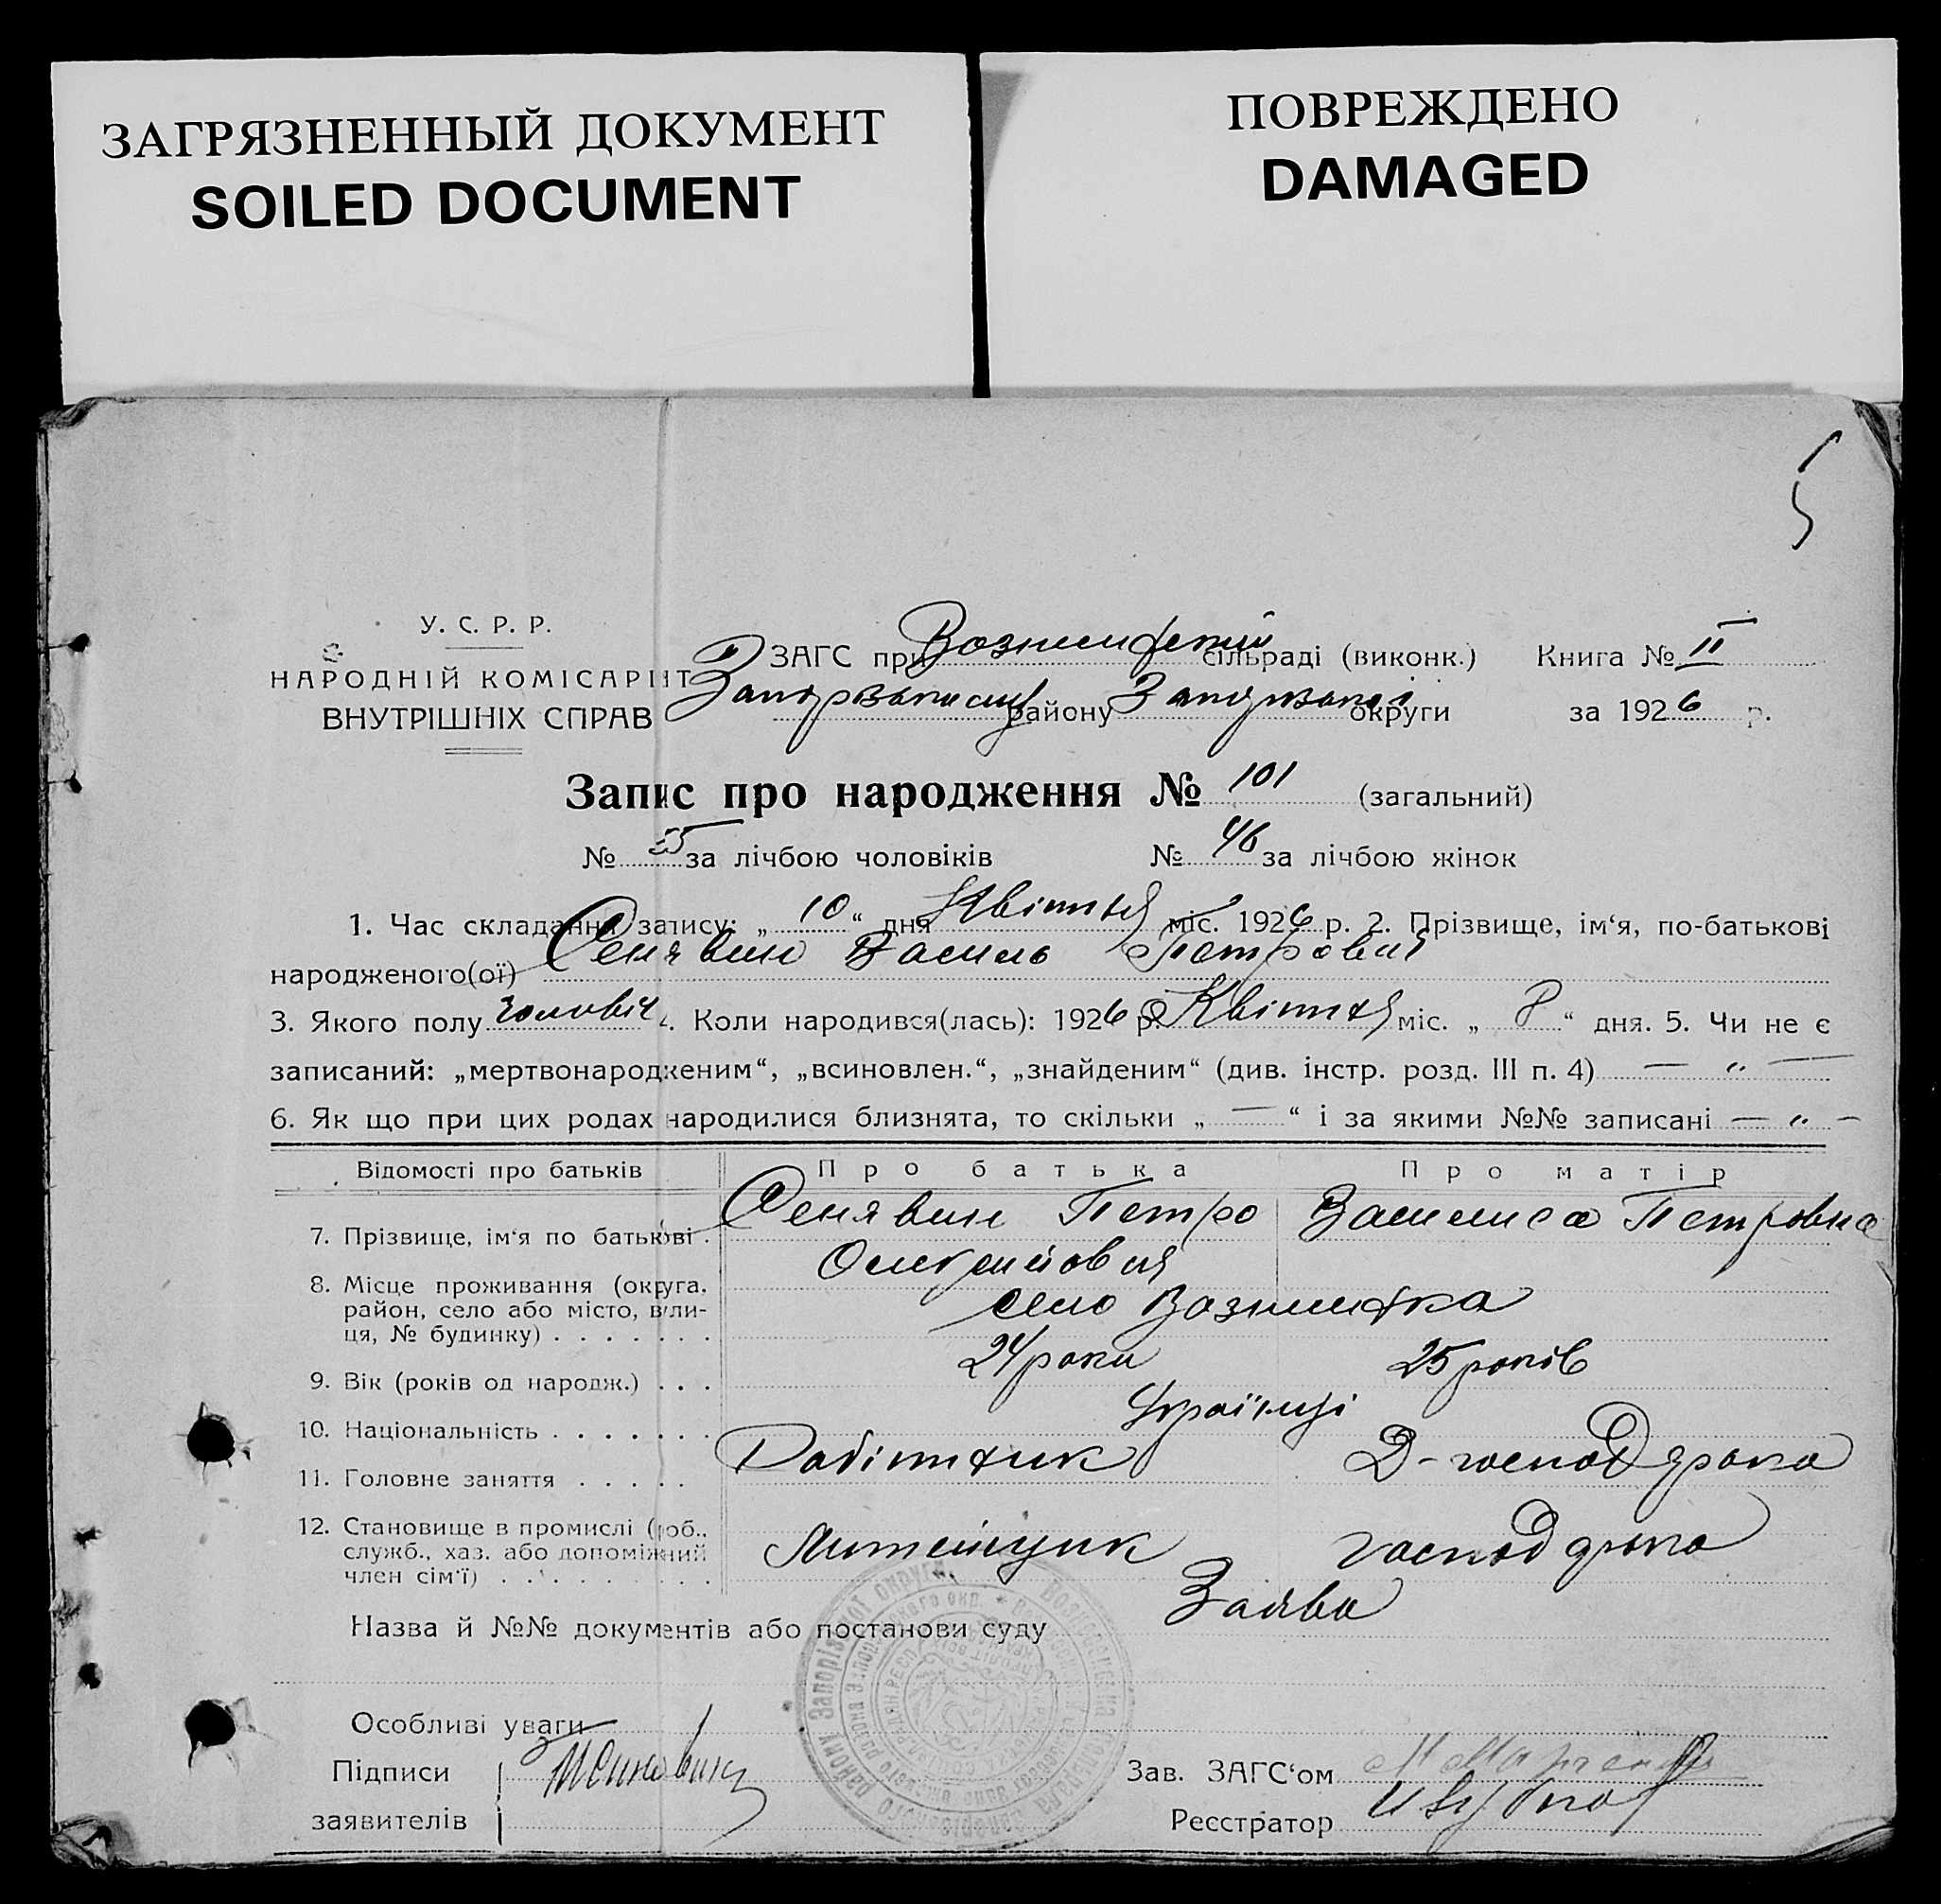 ЗАГРЯЗНЕННЫЙ ДОКУМЕНТ
SOILED DOCUMENT
ПОВРЕЖДЕНО
DAMAGED
5
У. С. Р. Р.
НАРОДНІЙ КОМІСАРІЯТ
ВНУТРІШНІХ СПРАВ
ЗАГС при сільраді (виконк.) Книга № II
району округи за 1926 р.
Запис про народження № 101 (загальний)
№ 55 за лічбою чоловіків № 46 за лічбою жінок
1. Час складання запису: „ 10 “ дня Квітня міс. 1926 р. 2. Прізвище, ім‘я, по-батькові
народженого(ої) Сенявин Василь Петрович
3. Якого полу чоловіч 4. Коли народився(лась): 1926 р. Квітня міс. „ 8 “ дня. 5. Чи не є
записаний: „мертвонародженим“, „всиновлен.“, „знайденим“ (див. інстр. розд. III п. 4) — „ —
6. Як що при цих родах народилися близнята, то скільки „ — “ і за якими №№ записані — „ —
Відомості про батьків Про батька Про матір
7. Прізвище, ім‘я по батькові . Сенявин Петро Василиса Петровна
Олексійович
8. Місце проживання (округа, район, село або місто, вули-
ця, № будинку) . . . . . . . село Вознесенка
9. Вік (років од народж.) . . . 24 роки 25 років
10. Національність . . . . . . . Українці
11. Головне заняття . . . . . Робітник Д-господарка
12. Становище в промислі (роб.,
служб., хаз. або допоміжний
член сім‘ї) . . . . . . . . . Литейщик господарка
Назва й №№ документів або постанови суду Заява
Особливі уваги
Підписи
заявителів
Зав. ЗАГС‘ом
Реєстратор